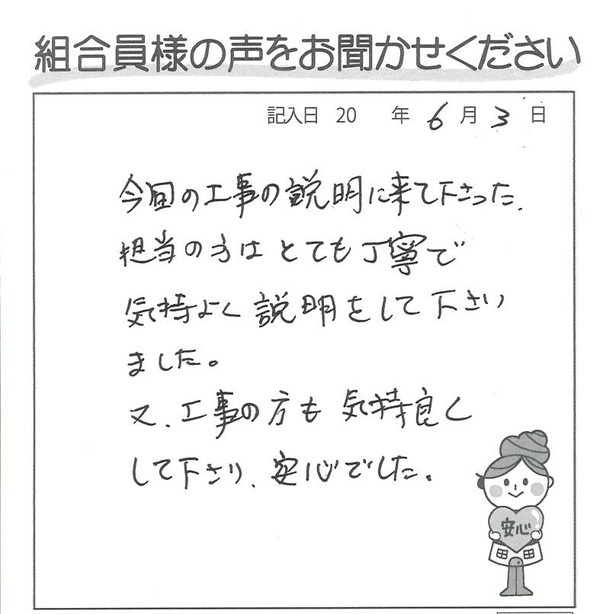 組合員様の声をお聞かせください
記入日 20 年 6 月 3 日
今回の工事の説明に来て下さった、
担当の方はとても丁寧で
気持よく説明をして下さい
ました。
又、工事の方も気持良く
して下さり、安心でした。
安心